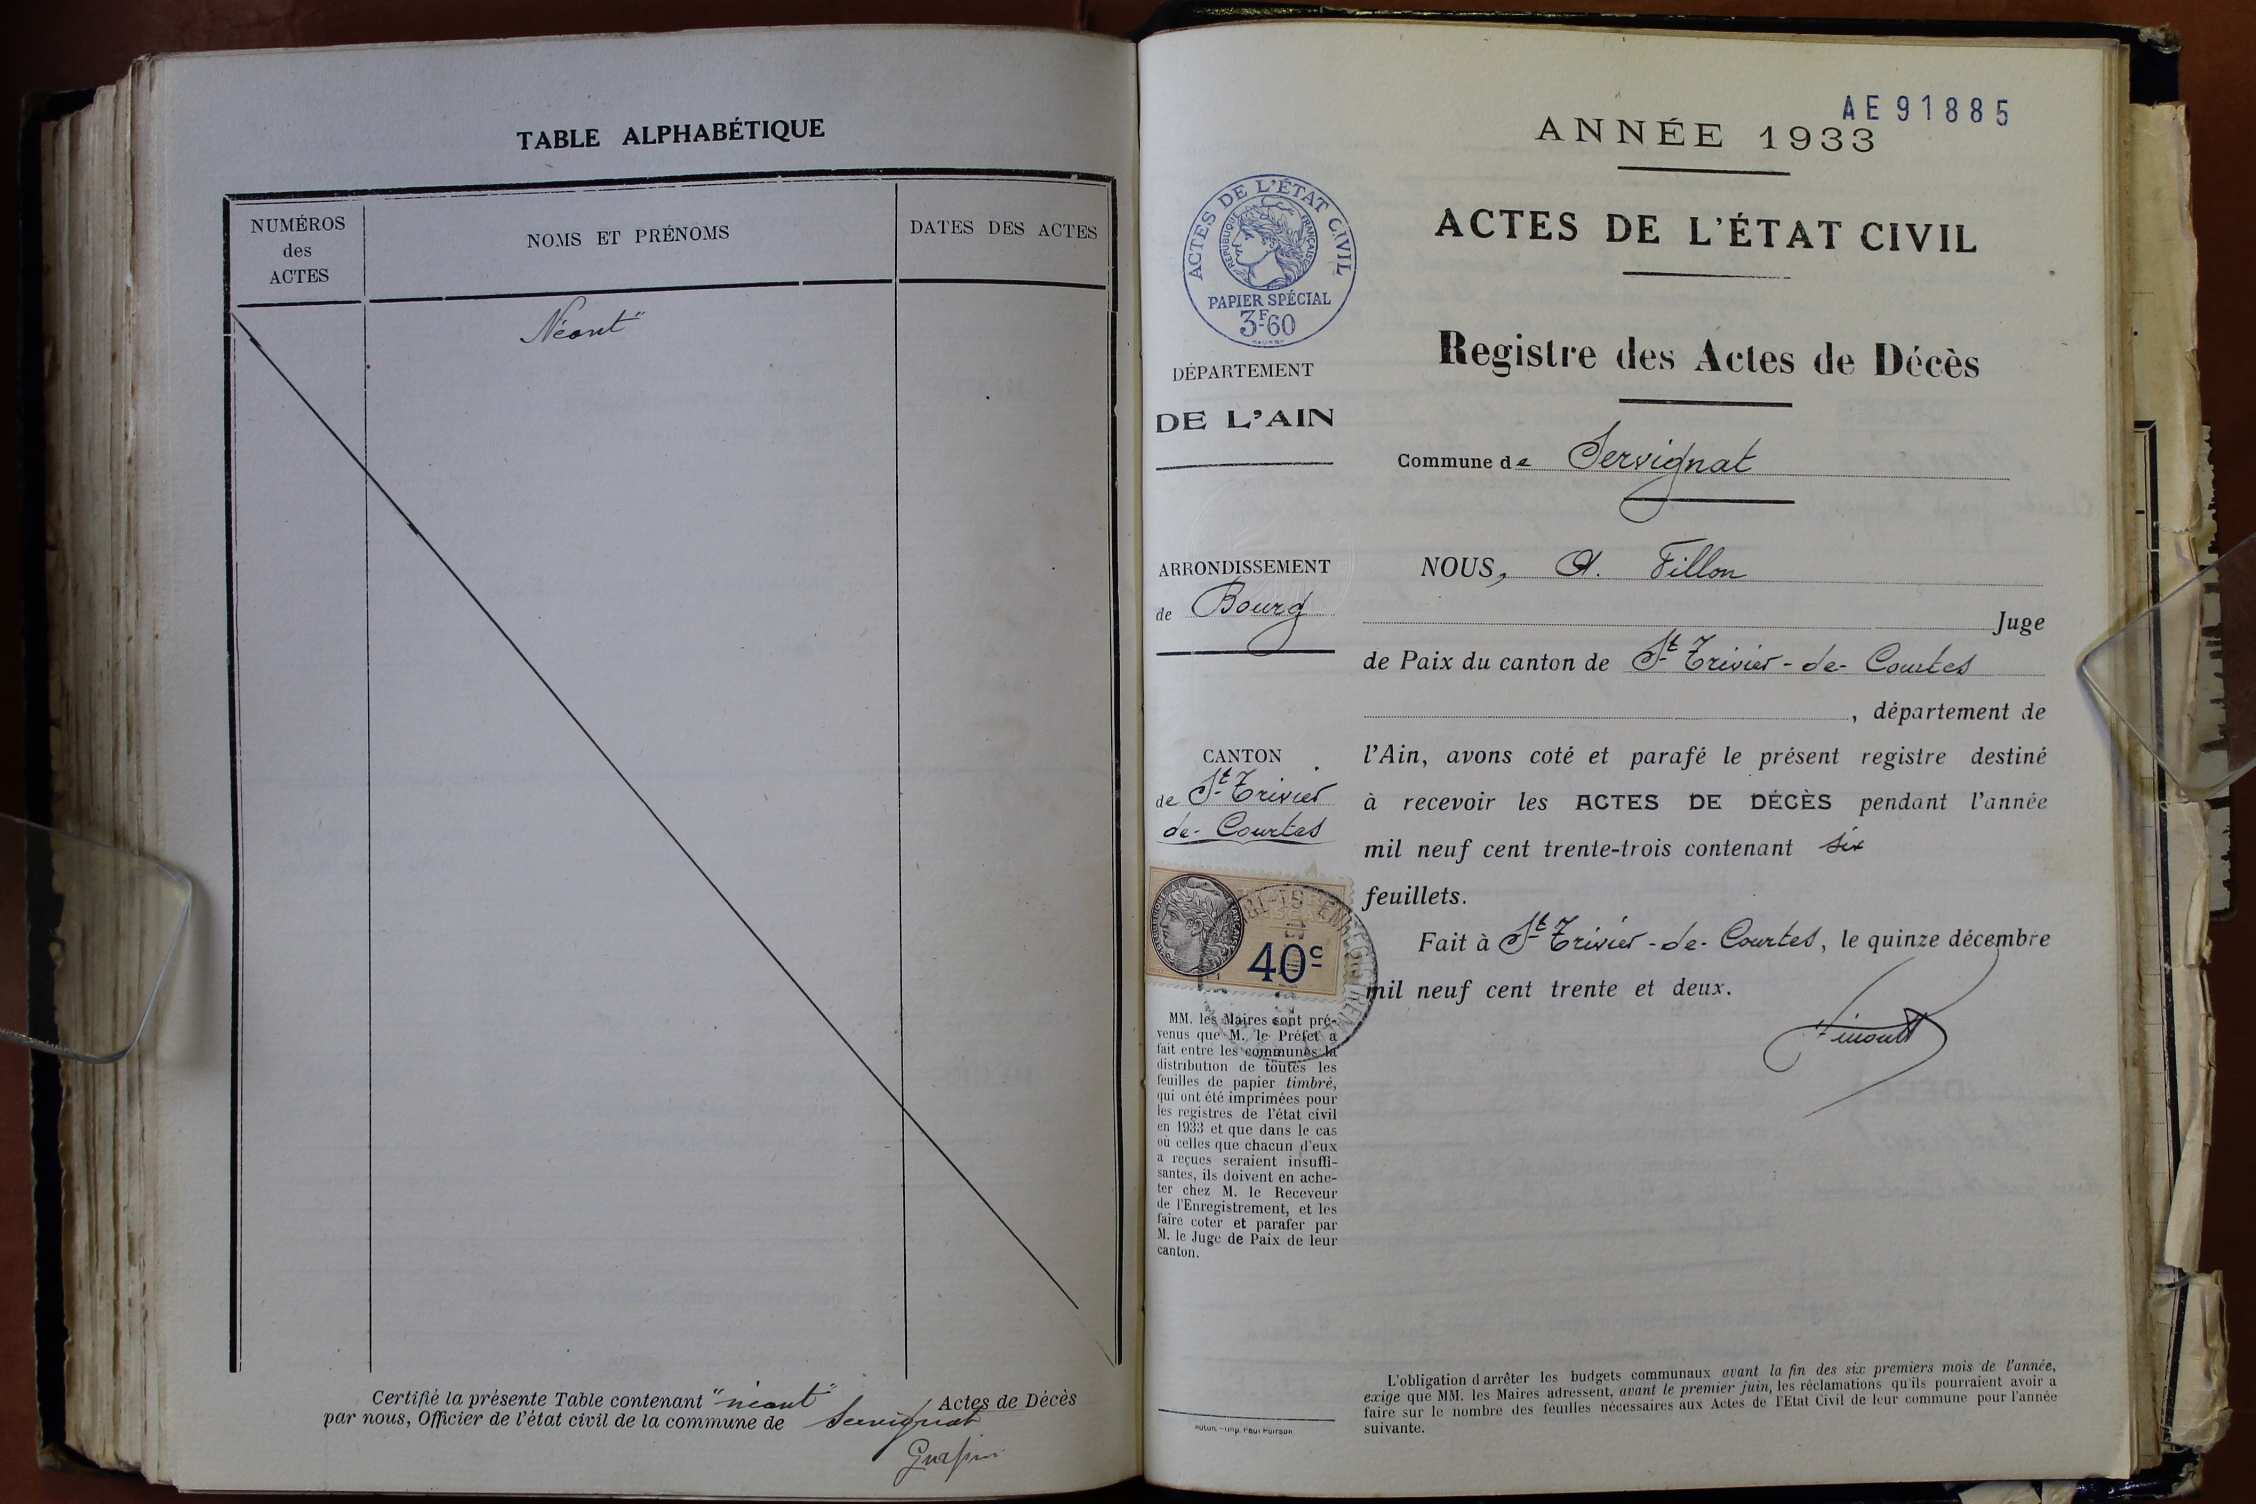 TABLE ALPHABÉTIQUE
NUMÉROS
des
ACTES
NOMS ET PRÉNOMS
DATES DES ACTES
Néant"
Certifié la présente Table contenant "néant" Actes de Décès
par nous, Officier de l'état civil de la commune de Servignat
AE 91885
ANNÉE 1933
ACTES DE L'ÉTAT CIVIL
RÉPUBLIQUE FRANÇAISE
PAPIER SPÉCIAL
3F60
ACTES DE L'ÉTAT CIVIL
Registre des Actes de Décès
DÉPARTEMENT
DE L'AIN
Commune de Servignat
ARRONDISSEMENT
de Bourg
NOUS, A. Fillon
Juge
de Paix du canton de St Trivier-de-Courtes
, département de
l'Ain, avons coté et parafé le présent registre destiné
à recevoir les ACTES DE DÉCÈS pendant l'année
mil neuf cent trente-trois contenant six
feuillets.
Fait à St Trivier-de-Courtes, le quinze décembre
mil neuf cent trente et deux.
CANTON
de St Trivier
de-Courtes
40c
MM. les Maires sont pré-
venus que M. le Préfet a
fait entre les communes la
distribution de toutes les
feuilles de papier timbré,
qui ont été imprimées pour
les registres de l'état civil
en 1933 et que dans le cas
où celles que chacun d'eux
a reçues seraient insuffi-
santes, ils doivent en ache-
ter chez M. le Receveur
de l'Enregistrement, et les
faire coter et parafer par
M. le Juge de Paix de leur
canton.
L'obligation d'arrêter les budgets communaux avant la fin des six premiers mois de l'année,
exige que MM. les Maires adressent, avant le premier juin, les réclamations qu'ils pourraient avoir a
faire sur le nombre des feuilles nécessaires aux Actes de l'Etat Civil de leur commune pour l'année
suivante.